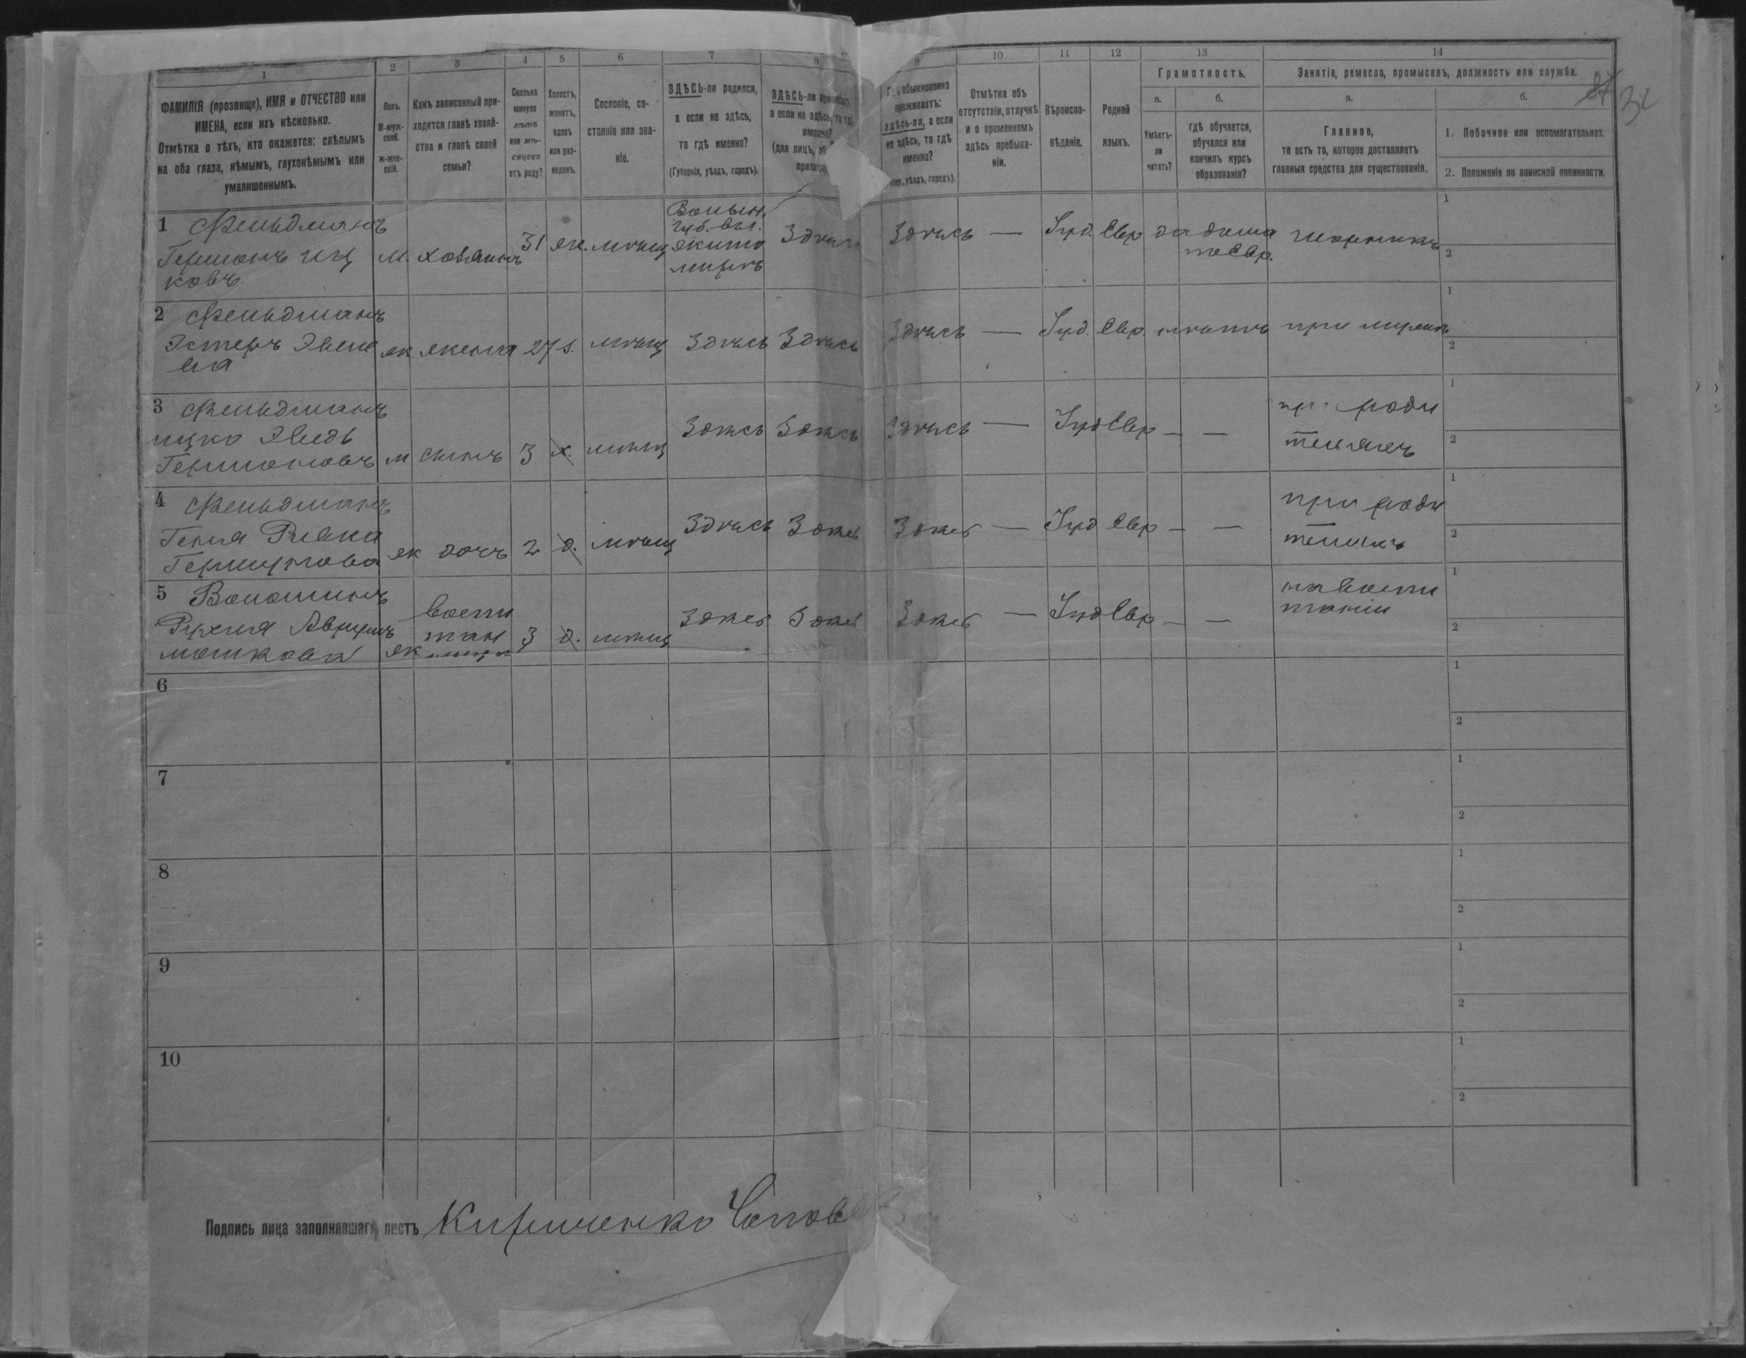 1 2 3 4 5 6 7 8 9 10 11 12 13 14
ФАМИЛІЯ (прозвище), ИМЯ и ОТЧЕСТВО или
ИМЕНА, если ихъ нѣсколько.
Отмѣтка о тѣхъ, кто окажется: слѣпымъ
на оба глаза, нѣмымъ, глухонѣмымъ или
умалишеннымъ.
Полъ.
М-муж-
ской.
ж-жен-
скій.
Какъ записанный при-
ходится главѣ хозяй-
ства и главѣ своей
семьи?
Сколько
минуло
лѣтъ
или мѣ-
сяцевъ
отъ роду?
Холостъ,
женатъ,
вдовъ
или раз-
веденъ.
Сословіе, со-
стояніе или зва-
ніе.
ЗДѢСЬ-ли родился,
а если не здѣсь,
то гдѣ именно?
(Губернія, уѣздъ, городъ).
ЗДѢСЬ-ли
а если не здѣсь, то гдѣ
именно?
(для лицъ,
обыкновенно
проживаетъ:
здѣсь-ли, а если
не здѣсь, то гдѣ
именно?
уѣздъ, городъ).
Отмѣтка объ
отсутствіи, отлучкѣ
и о временномъ
здѣсь пребыва-
ніи.
Вѣроиспо-
вѣданіе.
Родной
языкъ.
Грамотность.
а. б.
Умѣетъ-
ли
читать?
гдѣ обучается,
обучался или
кончилъ курсъ
образованія?
Занятія, ремесло, промыселъ, должность или служба.
а. б.
Главное,
то есть то, которое доставляетъ
главныя средства для существованія.
1. Побочное или вспомогательное.
2. Положеніе по воинской повинности.
1 Фельдманъ
Гершонъ Иц
ковъ
м. хозяинъ 31 ж. мѣщ
Волын.
губ. гор.
Жито
миръ
Здѣсь Здѣсь — Іуд. Евр да дома
по Евр.
2 Фельдманъ
Эстеръ
ж жена 27 з. мѣщ Здѣсь Здѣсь Здѣсь — Іуд. Евр. нѣтъ при мужѣ
3 Фельдманъ
Ицко
Гершоновъ м сынъ 3 х. мѣщ Здѣсь Здѣсь Здѣсь — Іуд Евр — —
при роди
теляхъ
4 Фельдманъ
Ривка
ж дочь 2 д. мѣщ Здѣсь Здѣсь Здѣсь — Іуд Евр — —
при роди
теляхъ
5 Волошинъ
Рухля
Мошкова ж
воспи
тан
ница
3 д. мѣщ Здѣсь Здѣсь Здѣсь — Іуд Евр — —
на воспи
таніи
6
7
8
9
10
Подпись лица заполнявшаго листъ Кириченко